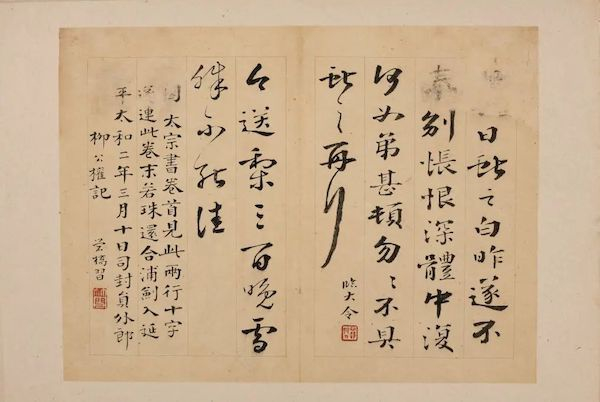 日獻之白昨遂不
奉別悵恨深體中復
何如弟甚頓勿〻不具
獻之再拜
臨大令
今送梨三百晚雪
殊不能佳
因太宗書卷首見此兩行十字
遂連此卷末若珠還合浦劍入延
平太和二年三月十日司封員外郎
柳公權記
橋習